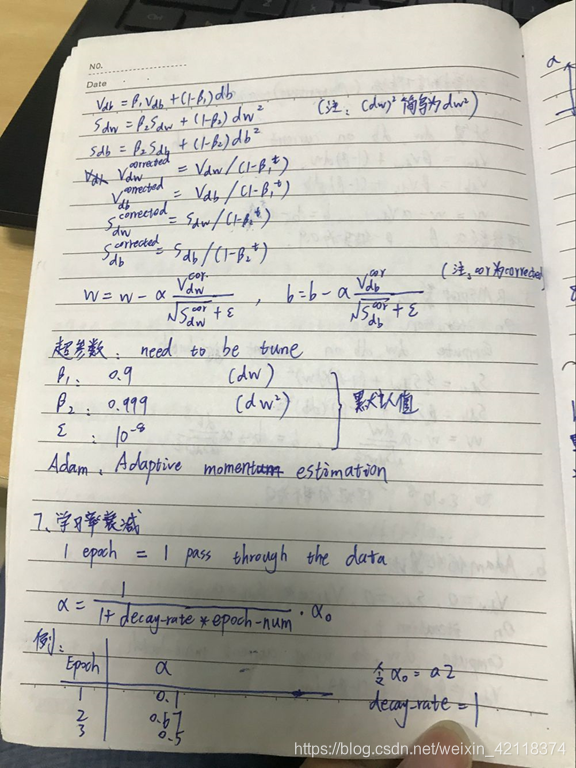 NO.
Date
V_db = β₁V_db + (1-β₁)db
S_dw = β₂S_dw + (1-β₂)dw² (注:(dw)²简写为dw²)
S_db = β₂S_db + (1-β₂)db²
V_dw^corrected = V_dw/(1-β₁^t)
V_db^corrected = V_db/(1-β₁^t)
S_dw^corrected = S_dw/(1-β₂^t)
S_db^corrected = S_db/(1-β₂^t)
w = w - α V_dw^cor/(√S_dw^cor + ε) , b = b - α V_db^cor/(√S_db^cor + ε) (注:cor为corrected)
超参数: need to be tune
β₁: 0.9 (dw)
β₂: 0.999 (dw²) 默认值
ε : 10^-8
Adam: Adaptive moment estimation
7、学习率衰减
1 epoch = 1 pass through the data
α = 1/(1+decay-rate*epoch-num) · α₀
例:
Epoch α 令α₀=0.2
1 0.1 decay-rate=1
2 0.67
3 0.5
https://blog.csdn.net/weixin_42118374